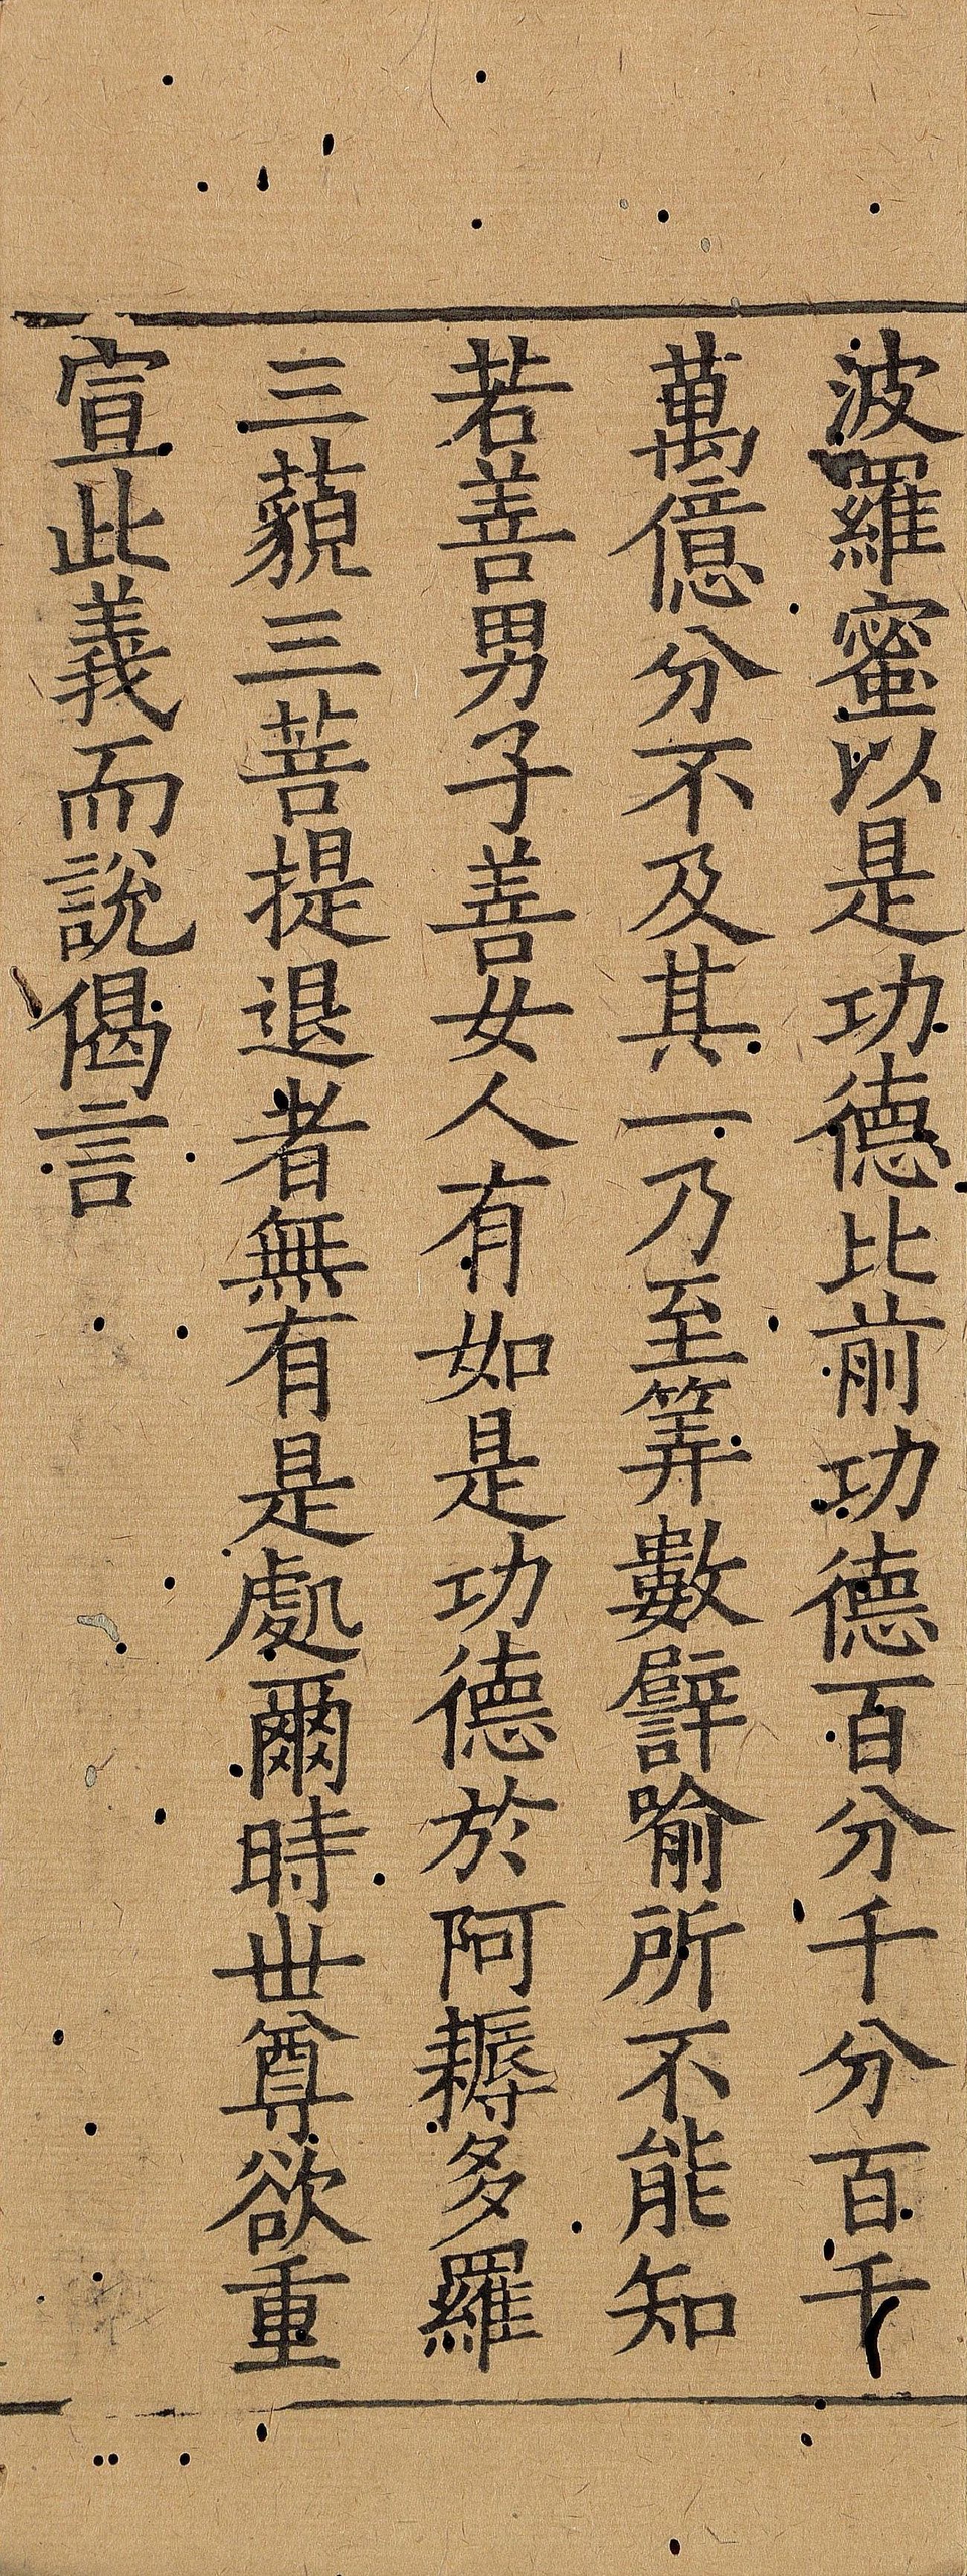 波羅蜜以是功德比前功德百分千分百千
萬億分不及其一乃至筭數譬喻所不能知
若善男子善女人有如是功德於阿耨多羅
三藐三菩提退者無有是處爾時世尊欲重
宣此義而說偈言